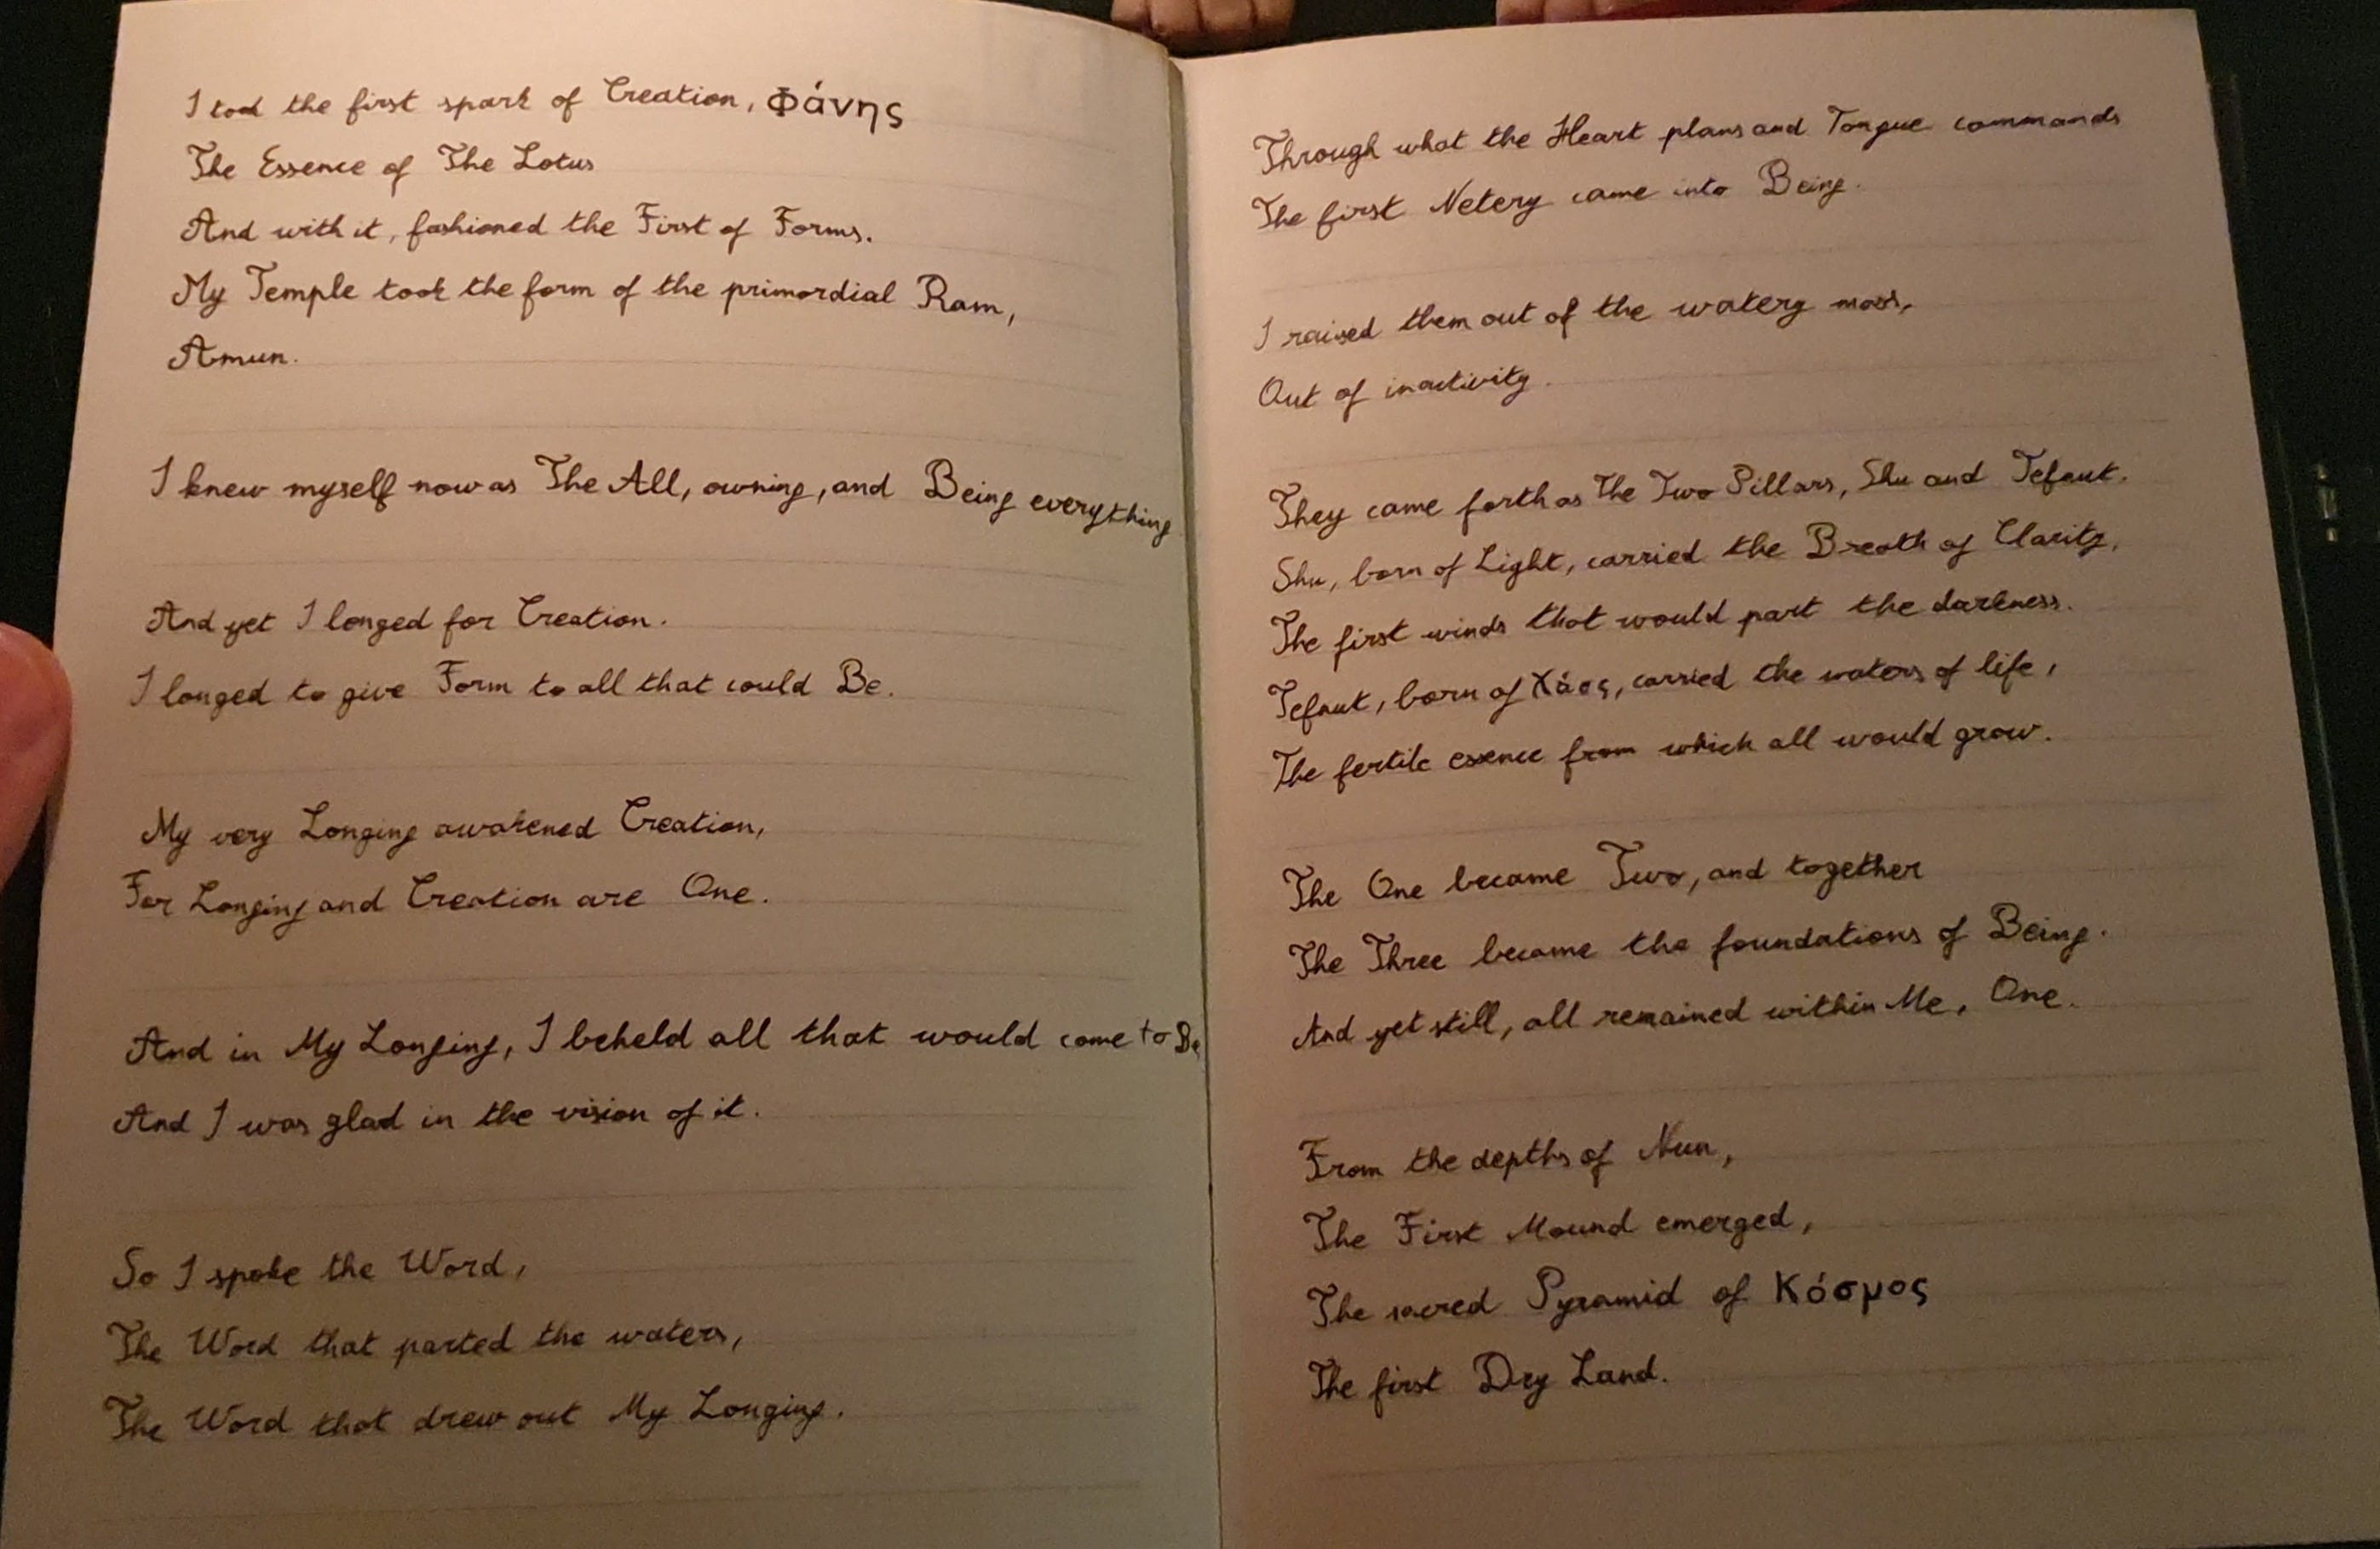 I took the first spark of Creation, Φάνης
The Essence of The Lotus
And with it, fashioned the First of Forms.
My Temple took the form of the primordial Ram,
Amun.
I knew myself now as The All, owning, and Being everything
And yet I longed for Creation.
I longed to give Form to all that could Be.
My very Longing awakened Creation,
For Longing and Creation are One.
And in My Longing, I beheld all that would come to Be
And I was glad in the vision of it.
So I spoke the Word,
The Word that parted the waters,
The Word that drew out My Longing.
Through what the Heart plans and Tongue commands
The first Netery came into Being.
I raised them out of the watery mass,
Out of inactivity.
They came forth as The Two Pillars, Shu and Tefnut.
Shu, born of Light, carried the Breath of Clarity,
The first winds that would part the darkness.
Tefnut, born of Χάος, carried the waters of life,
The fertile essence from which all would grow.
The One became Two, and together
The Three became the foundations of Being.
And yet still, all remained within Me, One.
From the depths of Nun,
The First Mound emerged,
The sacred Pyramid of Κόσμος
The first Dry Land.